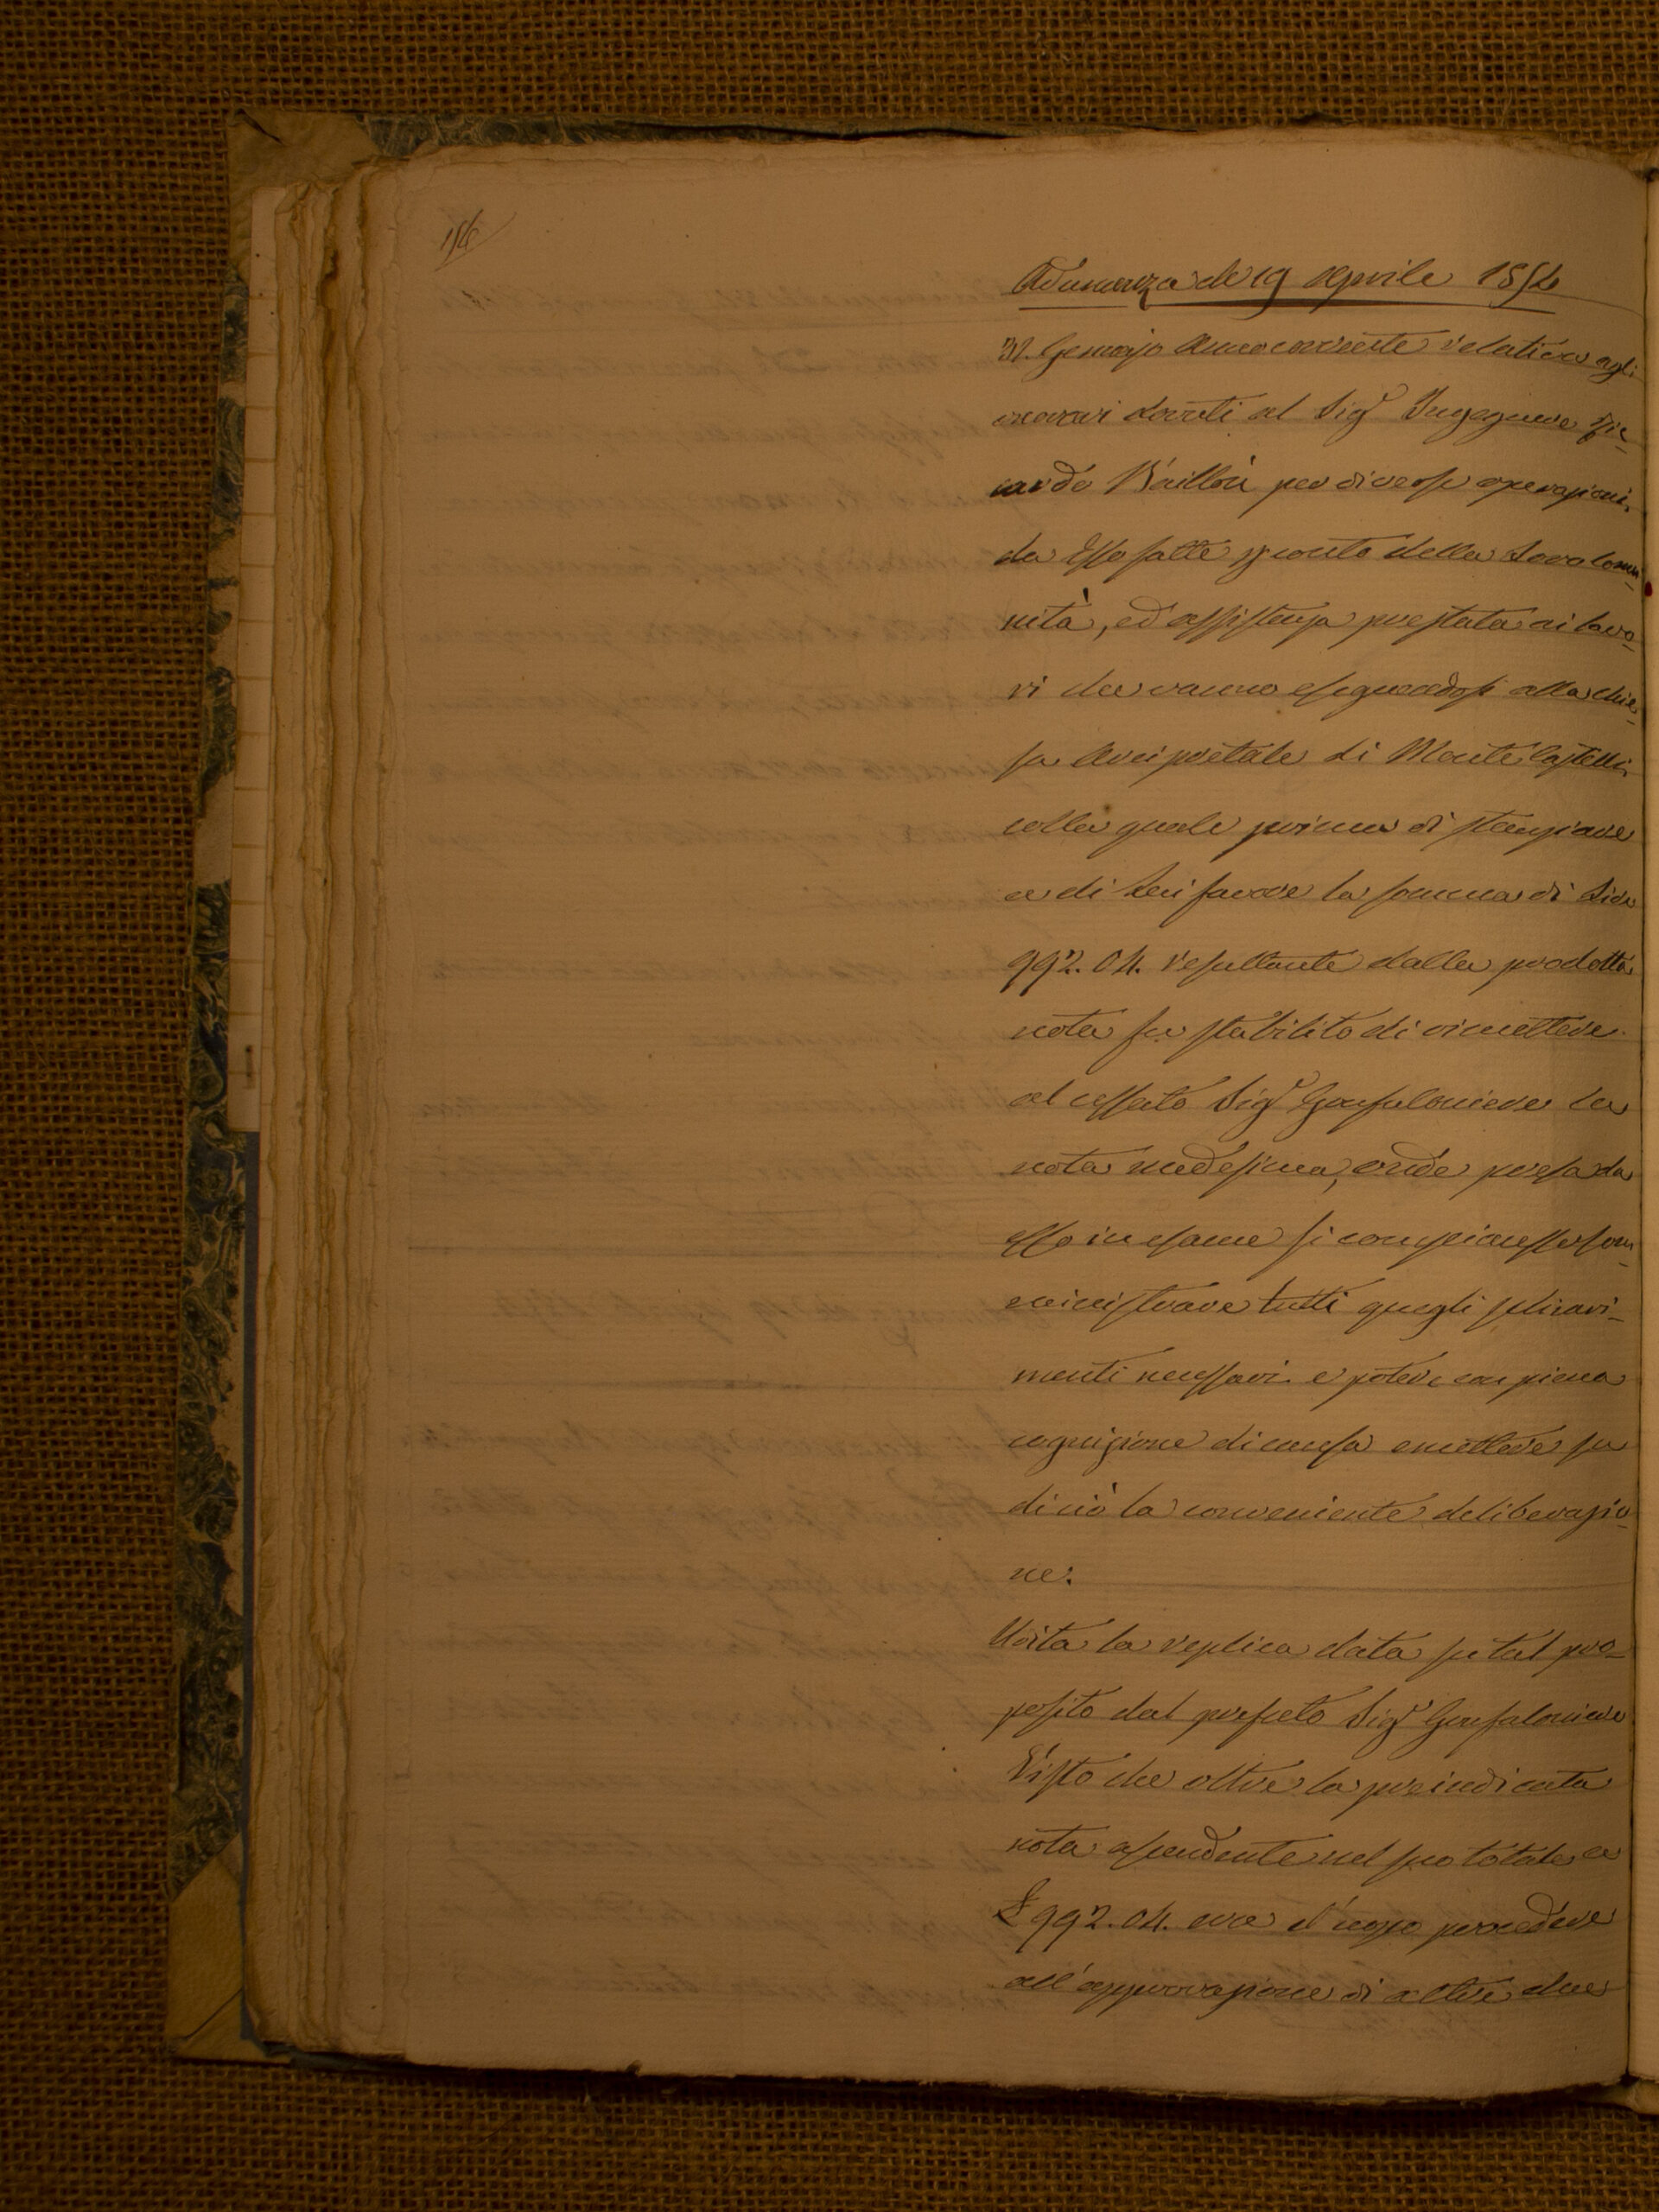 154
Adunanza de 19 Aprile 1854
31. Gennajo Anno corrente relativa agli
onorari dovuti al Sig.r Ingegnere Ric-
cardo Baillou per diverse operazioni
da Esso fatte p conto della Sova Comu-
nità, ed assistenza prestata ai lavo-
ri che vanno eseguendosi alla chie-
sa Arcipretale di Monte Castelli
colla quale prima di stanziare
a di Lei favore la somma di Lire
992.04. resultante dalla prodotta
nota fu stabilito di rimettere
al cessato Sig.r Gonfaloniere la
nota medesima, onde presa da
esso in esame si compiacesse som-
ministrare tutti quegli schiari-
menti necessari e potere con piena
cognizione di causa emettere su
di ciò la conveniente deliberazio-
ne.
Udita la replica data su tal pro-
posito dal prefato Sig.r Gonfaloniere
Visto che oltre la preindicata
nota ascendente nel suo totale a
£ 992.04. era d'uopo procedere
all'approvazione di altre due